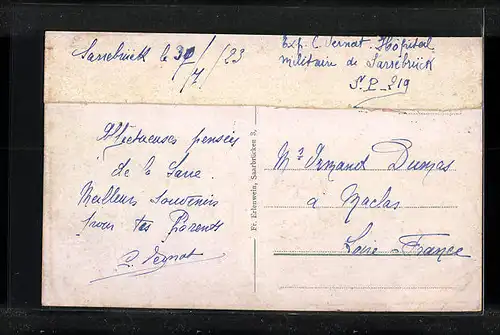 Sarrebrück le 30/7/23
Exp. C. Vernat. Hôpital
Militaire de Sarrebrück
S.P. 219
Affectueuses pensées
de la Sarre.
Meilleurs Souvenirs
pour tes Parents
Fr. Erlenwein, Saarbrücken 3.
Mr Armand Dumas
à Maclas
Loire-France